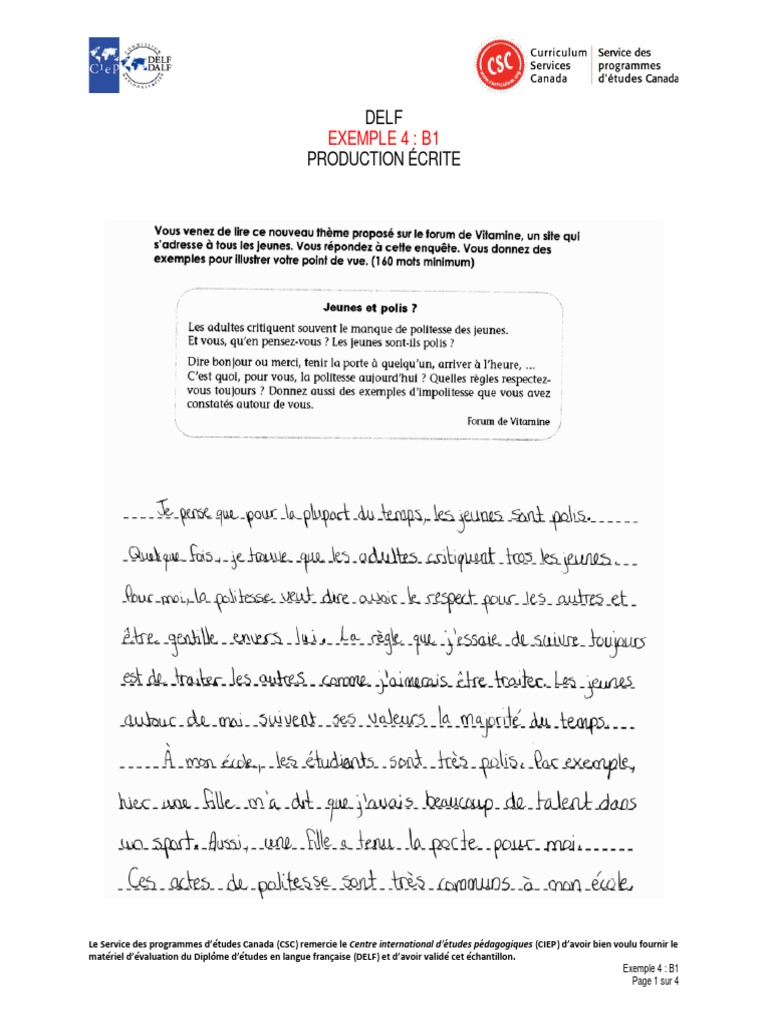 CIEP
COMMISSION
DELF
DALF
NATIONALE
CSC
www.curriculum.org
Curriculum
Services
Canada
Service des
programmes
d'études Canada
DELF
EXEMPLE 4 : B1
PRODUCTION ÉCRITE
Vous venez de lire ce nouveau thème proposé sur le forum de Vitamine, un site qui
s'adresse à tous les jeunes. Vous répondez à cette enquête. Vous donnez des
exemples pour illustrer votre point de vue. (160 mots minimum)
Jeunes et polis ?
Les adultes critiquent souvent le manque de politesse des jeunes.
Et vous, qu'en pensez-vous ? Les jeunes sont-ils polis ?
Dire bonjour ou merci, tenir la porte à quelqu'un, arriver à l'heure, ...
C'est quoi, pour vous, la politesse aujourd'hui ? Quelles règles respectez-
vous toujours ? Donnez aussi des exemples d'impolitesse que vous avez
constatés autour de vous.
Forum de Vitamine
Je pense que pour la plupart du temps, les jeunes sont polis.
Quelque fois, je trouve que les adultes critiquent tros les jeunes.
Pour moi, la politesse veut dire avoir le respect pour les autres et
être gentille envers lui. La règle que j'essaie de suivre toujours
est de traiter les autres comme j'aimerais être traiter. Les jeunes
autour de moi suivent ses valeurs la majorité du temps.
À mon école, les étudiants sont très polis. Par exemple,
hier une fille m'a dit que j'avais beaucoup de talent dans
un sport. Aussi, une fille a tenu la porte pour moi.
Ces actes de politesse sont très communs à mon école.
Le Service des programmes d'études Canada (CSC) remercie le Centre international d'études pédagogiques (CIEP) d'avoir bien voulu fournir le
matériel d'évaluation du Diplôme d'études en langue française (DELF) et d'avoir validé cet échantillon.
Exemple 4 : B1
Page 1 sur 4